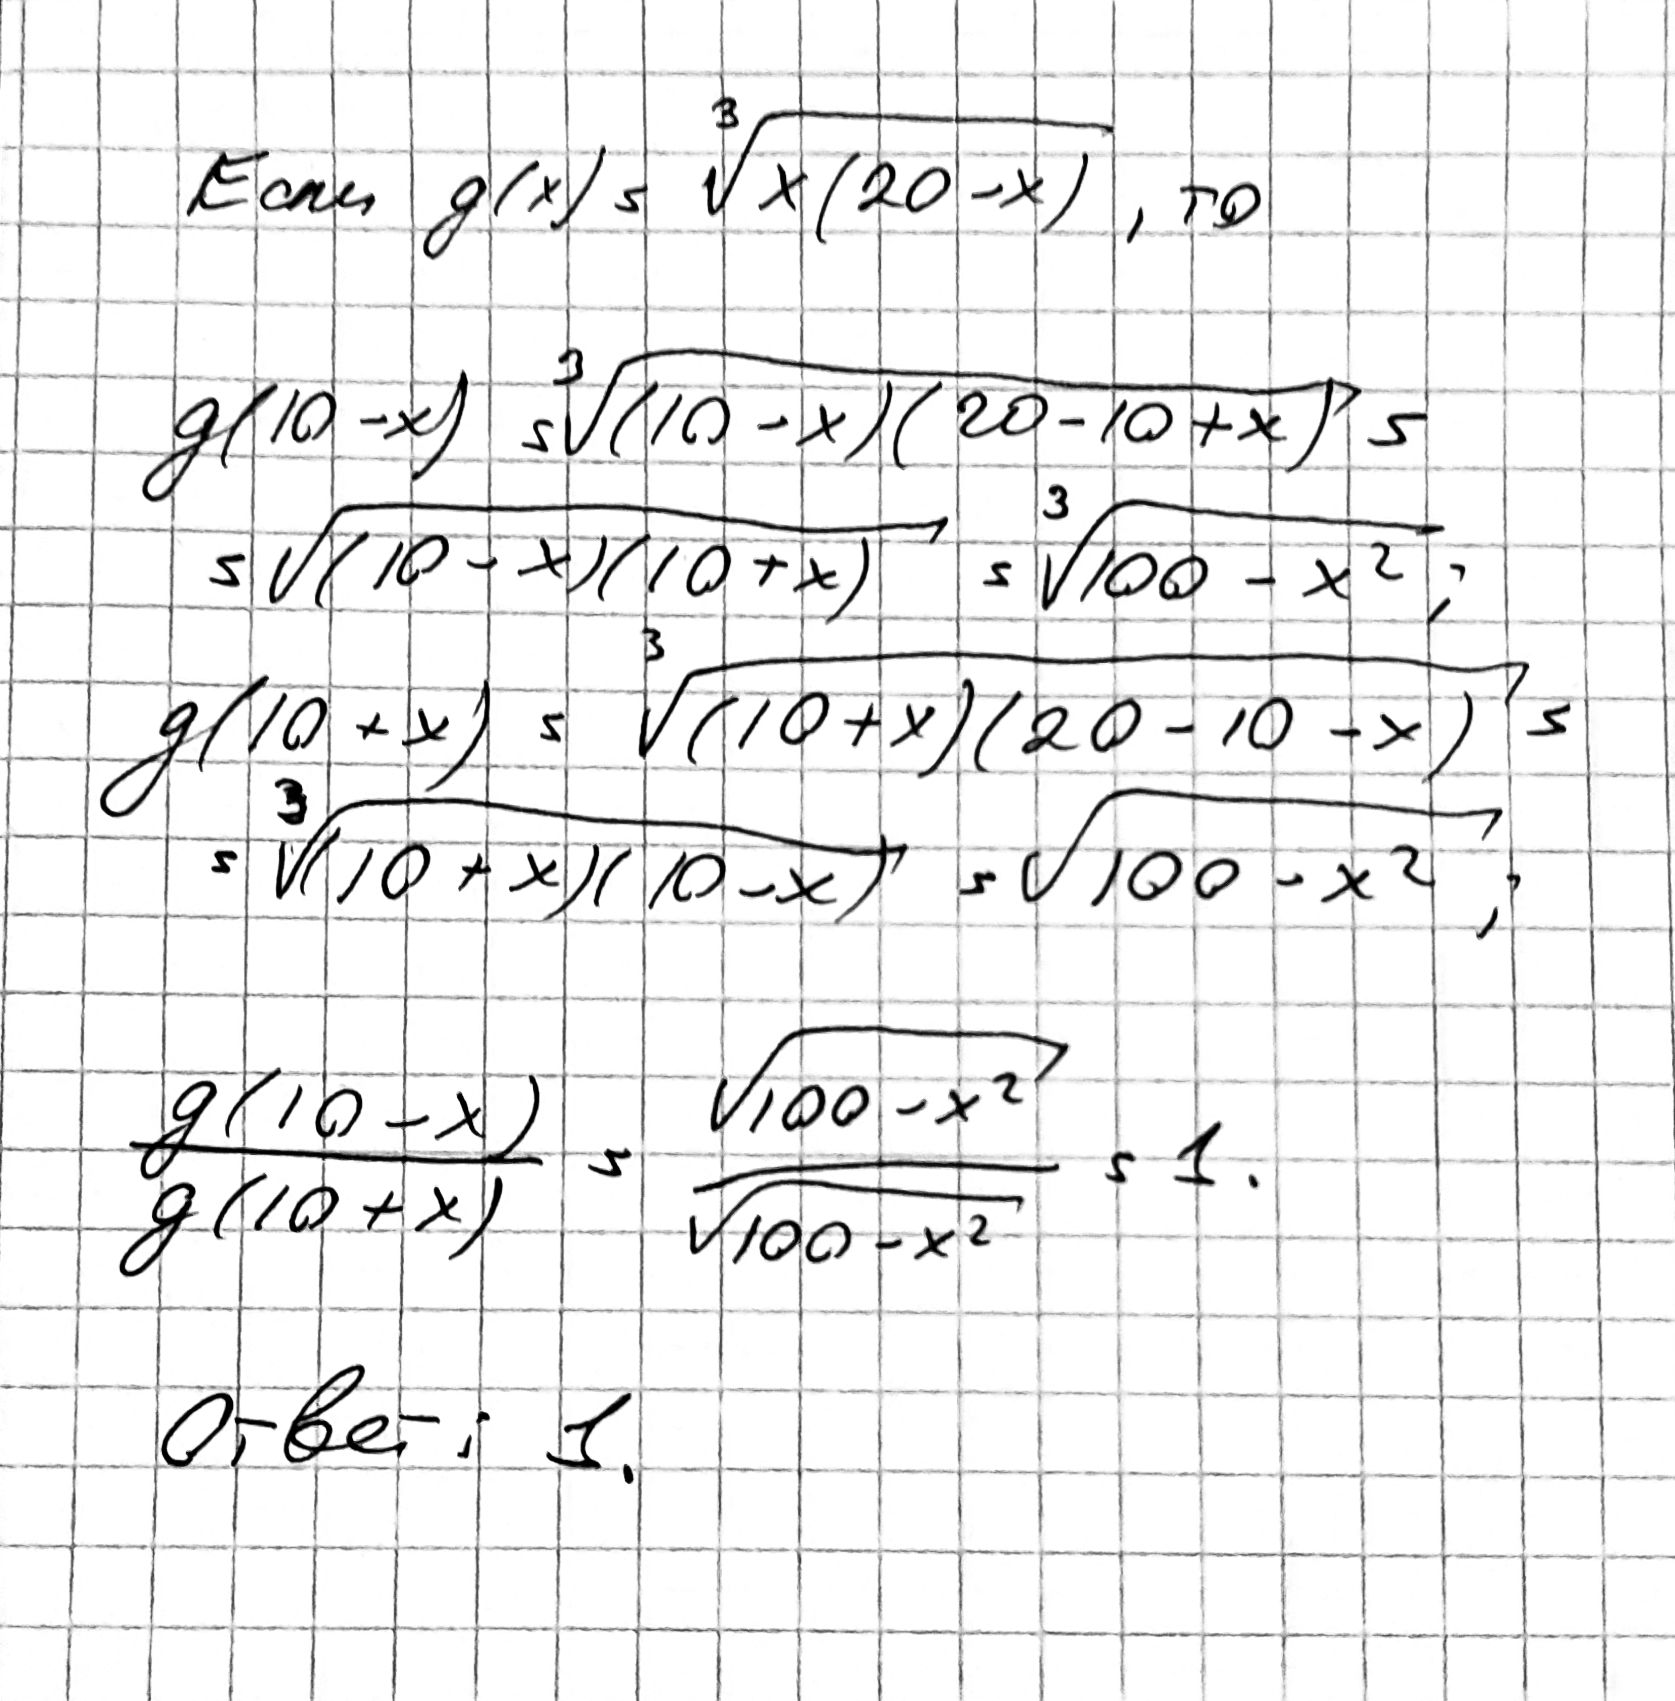 Если g(x) = ∛(x(20-x)), то
g(10-x) = ∛((10-x)(20-10+x)) =
= √((10-x)(10+x)) = ∛(100-x²);
g(10+x) = ∛((10+x)(20-10-x)) =
= ∛((10+x)(10-x)) = √(100-x²);
g(10-x)/g(10+x) = √(100-x²)/√(100-x²) = 1.
Ответ: 1.